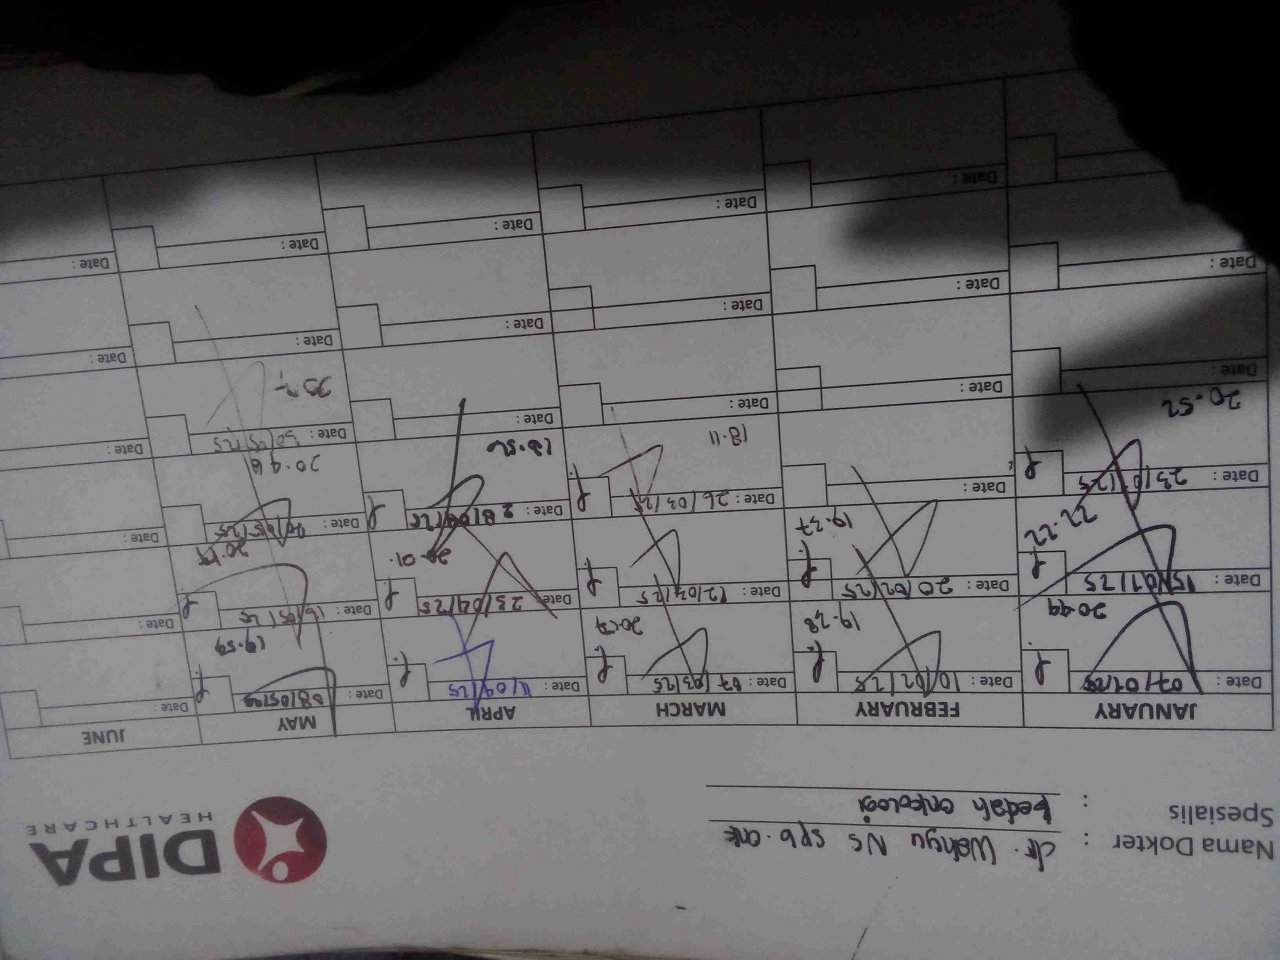 Nama Dokter : dr. Wahyu NS SpB.onk
Spesialis : bedah onkologi
DIPA
HEALTHCARE
JANUARY FEBRUARY MARCH APRIL MAY JUNE
Date : 07/01/25 Date : 10/02/25 Date : 07/03/25 Date : 11/04/25 Date : 08/05/25 Date :
20.49 19.28 19.59
Date : 15/01/25 Date : 20/02/25 Date : 12/03/25 Date : 23/04/25 Date : 16/05/25 Date :
22.22 19.37 20.01
Date : 23/01/25 Date : Date : 26/03/25 Date : 28/04/25 Date : 20/05/25 Date :
20.52 18.11 18.56 20.46
Date : Date : Date : Date : Date : 30/05/25 Date :
Date : Date : Date : Date : Date : Date :
Date : Date : Date : Date : Date :